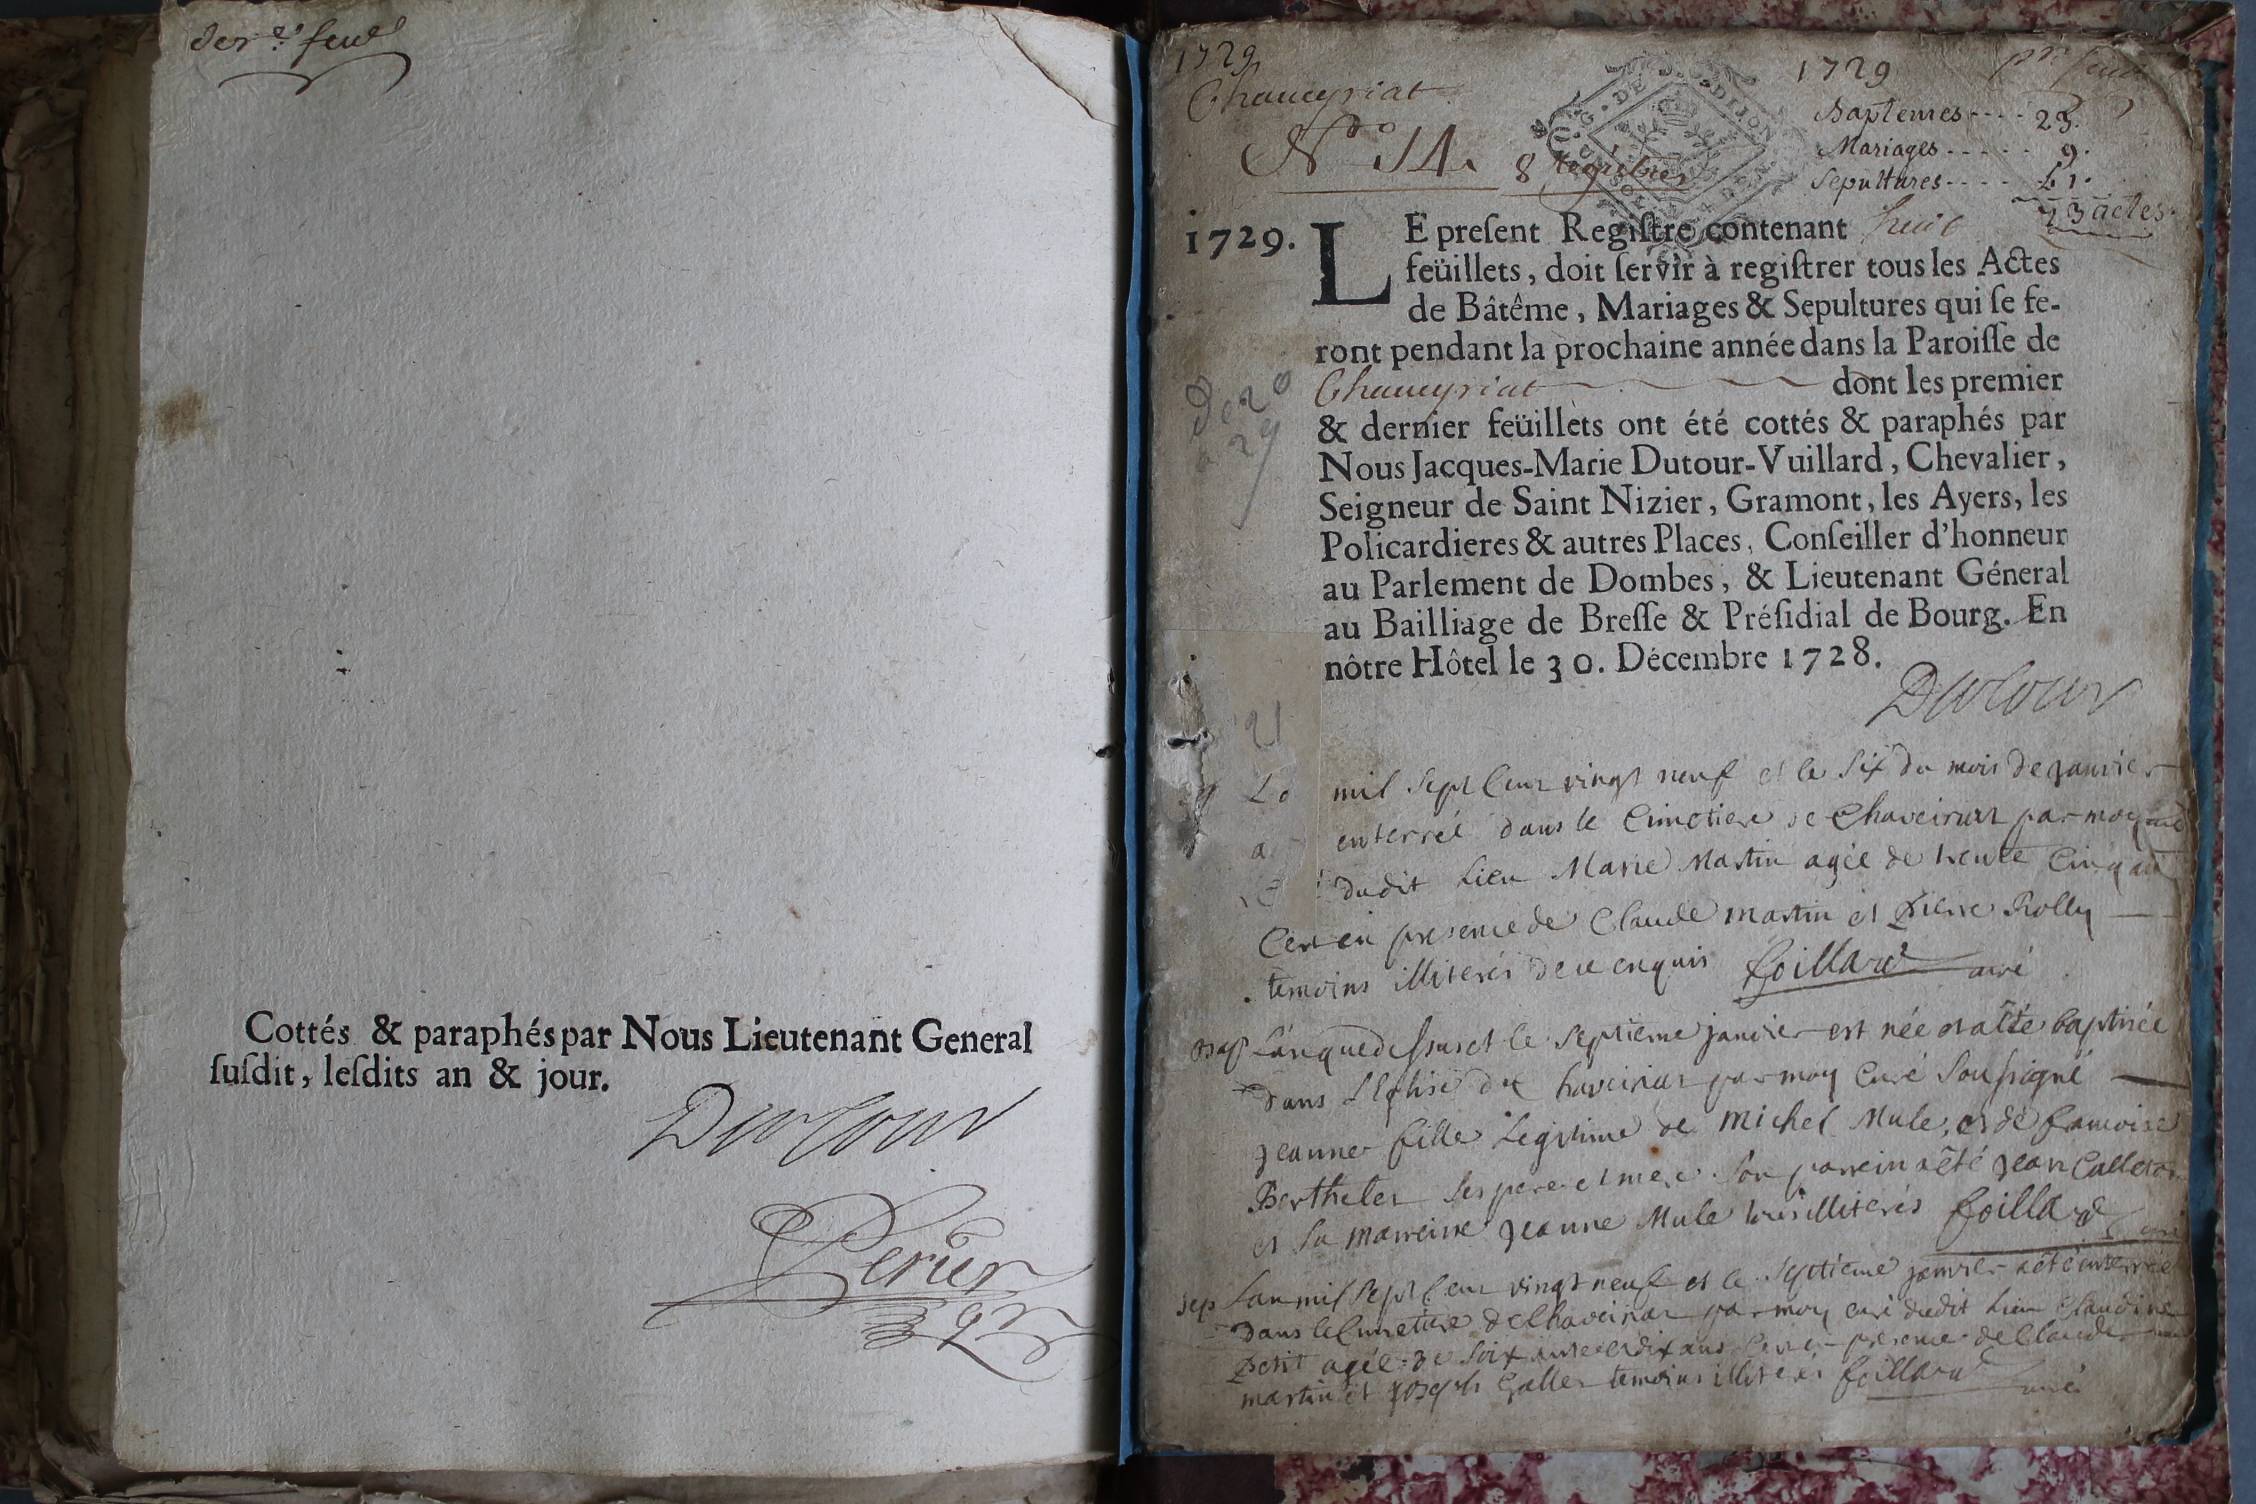 der.er feuet
Cottés & paraphés par Nous Lieutenant General
ſuſdit, leſdits an & jour.
Dutour
Perier
1729
Chaveyriat
1729
pr. feuil
No 14. 8 registres
Baptemes---- 23.
Mariages----- 9.
Sepultures---- 61.
actes.
1729. LE preſent Regiſtre contenant huit
feüillets, doit ſervir à regiſtrer tous les Actes
de Bâtême, Mariages & Sepultures qui ſe fe-
ront pendant la prochaine année dans la Paroiſſe de
Chaveyriat dont les premier
& dernier feüillets ont été cottés & paraphés par
Nous Jacques-Marie Dutour-Vuillard, Chevalier,
Seigneur de Saint Nizier, Gramont, les Ayers, les
Policardieres & autres Places, Conſeiller d'honneur
au Parlement de Dombes, & Lieutenant Géneral
au Bailliage de Breſſe & Préſidial de Bourg. En
nôtre Hôtel le 30. Décembre 1728.
Dutour
mil sept cent vingt neuf et le six du mois de janvier
a enterrée dans le Cimetiere de Chaveiriat par moy
dudit Lieu Marie Martin agée de trente cinq ans
en presence de Claude martin et pierre Rolly
temoins illiterés de ce enquis foillard curé
bap L'an que dessus et le septieme janvier est née et a été baptisée
dans L'Eglise de chaveiriat par moy curé soussigné
jeanne fille Legitime de Michel Mule, et de francoise
Berthelet ses pere et mere son parrein a été jean
et sa marreine jeanne Mule tous illiterés foillard curé
sep L'an mil sept cent vingt neuf et le septieme janvier a été enterrée
dans le cimetiere de Chaveiriat par moy curé dudit Lieu Claudine
petit agée de soixante et dix ans en presence de Claude
martin et joseph Galle temoins illiterés foillard curé